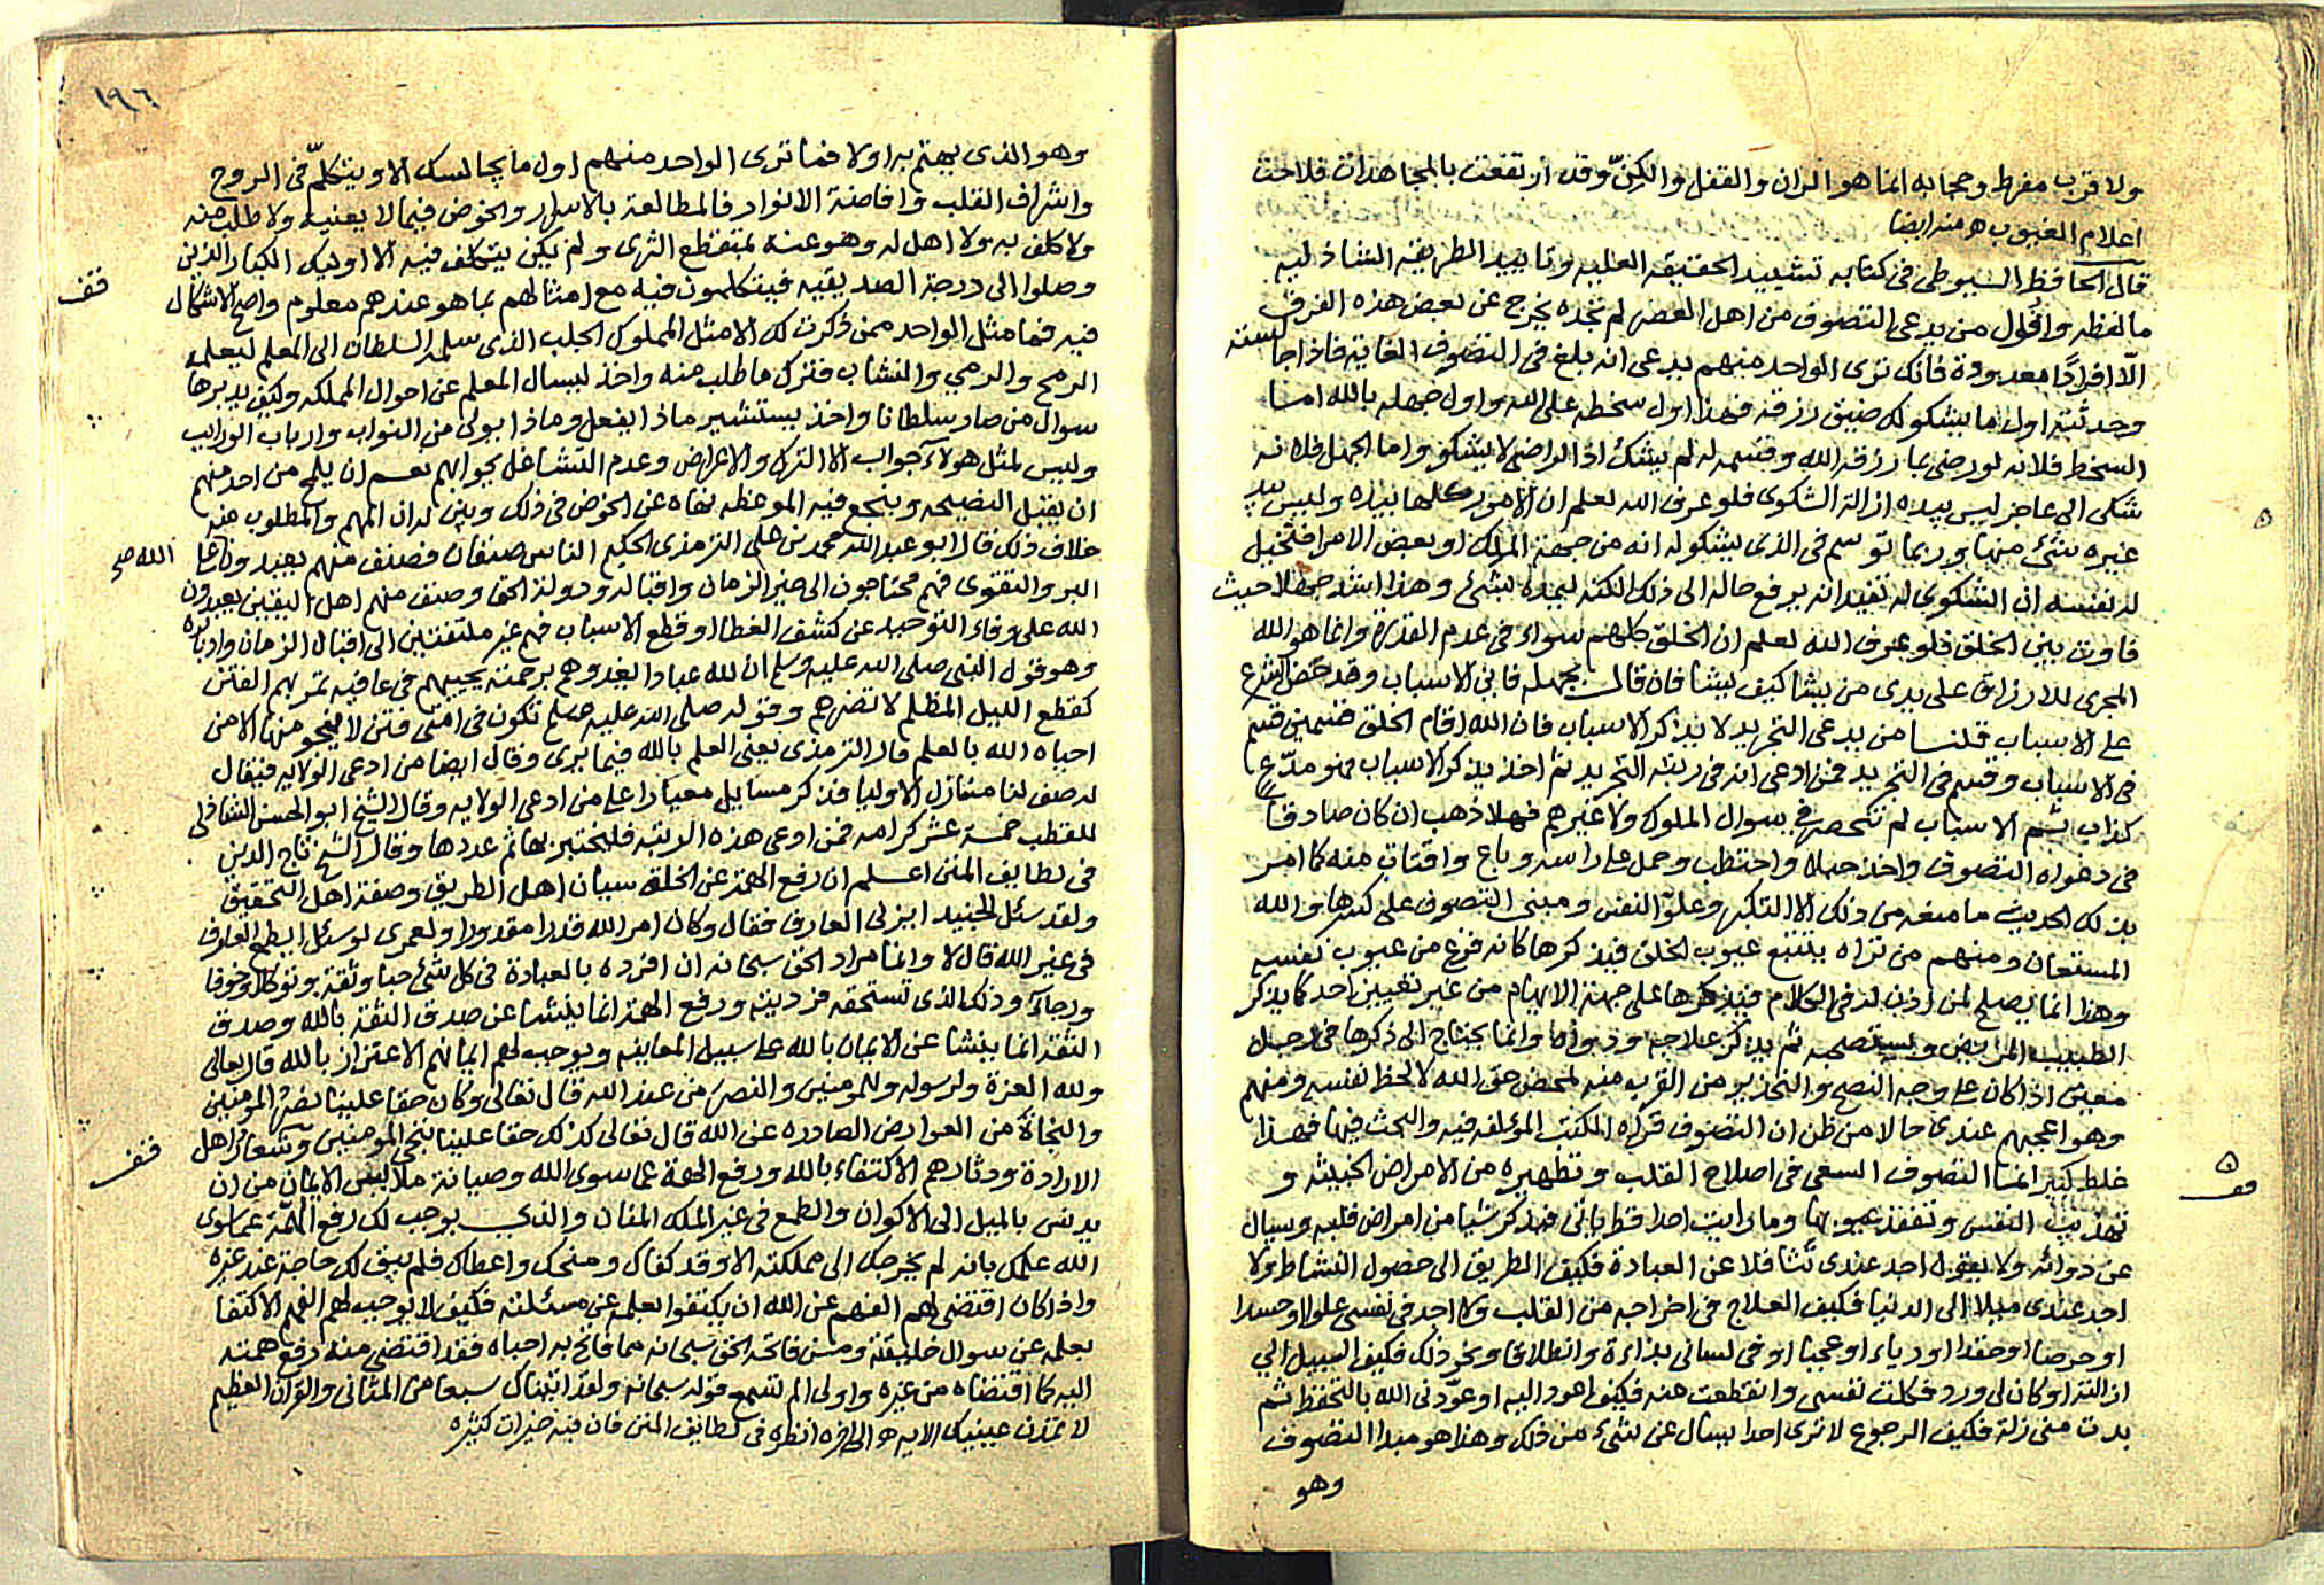 ولا قرب مفرط وحجابه انما هو الران والقفل والكنّ وقد ارتفعت بالمجاهدات فلاحت
اعلام الغيوب ه منه ايضا
قال الحافظ السيوطى فى كتابه تشييد الحقيقه العليه وتاييد الطريقه الشاذليه
ما لفظه واقول من يدعى التصوف من اهل العصر لم تجده يخرج عن بعض هذه الفرق
الّا افرادًا معدودة فانك ترى الواحد منهم يدعى انه بلغ فى التصوف الغاية فاذا جالسته
وحدثته اول ما يشكو لك ضيق رزقه فهذا اول سخطه على الله واول جهله بالله اما
السخط فلانه لو رضى بما رزقه الله وقسمه له لم يشك اذ الراضى لا يشكو واما الجهل فلانه
شكى الى عاجز ليس بيده ازالة الشكوى فلو عرف الله لعلم ان الامور كلها بيده وليس بيد
غيره شئ منها وربما توسم فى الذى يشكو له انه من جهة الملك او بعض الامرا فتخيل
له نفسه ان الشكوى له تفيد انه يرفع حاله الى ذلك لكنه ليمده بشئ وهذا اشد جهلا حيث
فاوت بين الخلق فلو عرف الله لعلم ان الخلق كلهم سواء فى عدم القدرة وانما هو الله
المجرى للارزاق على يدى من يشا كيف يشا فان قال بجهله فاين الاسباب وقد حض الشرع
على الاسباب قلنا من يدعى التجريد لا يذكر الاسباب فان الله اقام الخلق قسمين قسم
فى الاسباب وقسم فى التجريد فمن ادعى انه فى رتبة التجريد ثم اخذ يذكر الاسباب فهو مدّع
كذاب ثم الاسباب لم تنحصر فى سوال الملوك ولا غيرهم فهلا ذهب ان كان صادقا
فى دعواه التصوف واخذ حبلا واحتطب وحمل على راسه وباع واقتات منه كما امر
بذلك الحديث ما منعه من ذلك الا التكبر وعلوّ النفس ومبنى التصوف على كسرها والله
المستعان ومنهم من تراه يتتبع عيوب الخلق فيذكرها كانه فرغ من عيوب نفسه
وهذا انما يصلح لمن اذن له فى الكلام فيذكرها على جهة الابهام من غير تعيين احد كما يذكر
الطبيب المريض ثم يذكر علاجه ودواه وانما يحتاج الى ذكرها فى رجل
معين اذا كان على وجه النصح والتحذير من القرب منه لمحض حق الله لا لحظ نفسه ومنهم
وهو اعجبهم عندى حالا من ظن ان التصوف قراة الكتب المؤلفه فيه والبحث فيها فهذا
غلط كبير انما التصوف السعى فى اصلاح القلب وتطهيره من الامراض الخبيثه و
تهذيب النفس وتفقد عيوبها وما رايت احدا قط ياتى فيذكر شيا من امراض قلبه ويسال
عن دوائه ولا يقول احد عندى تثاقلا عن العبادة فكيف الطريق الى حصول النشاط ولا
اجد عندى ميلا الى الدنيا فكيف العلاج فى اخراجه من القلب ولا اجد فى نفسى علوا او حسدا
او حرصا او حقدا او رياء او عجبا او فى لسانى بذاءة وانطلاقا ونحو ذلك فكيف السبيل الى
ازالته او كان لى ورد فكلت نفسى وانقطعت عنه فكيف اعود اليه او عوّدنى الله بالتحفظ ثم
بدت منى زلة فكيف الرجوع لا ترى احدا يسال عن شئ من ذلك وهذا هو مبدا التصوف
وهو
١٩٦
وهو الذى يهتم به اولا فما ترى الواحد منهم اول ما يجالسك الا ويتكلّم فى الروح
واشراف القلب وافاضة الانوار فالمطالعة بالاسرار والخوض فيما لا يعنيه ولا طلب منه
ولا كلف به ولا اهل له وهو عنه بمتقطع الثرى ولم يكن يتكلف فيه الا اوليك الكبار الذين
وصلوا الى درجة الصديقيه فيتكلمون فيه مع امثالهم بما هو عندهم معلوم واضح لا اشكال
فيه فما مثل الواحد ممن ذكرت لك الا مثل المملوك الجلب الذى سلمه السلطان الى المعلم ليعلمه
الرمح والرمي والنشاب فترك ما طلب منه واخذ ليسال المعلم عن احوال المملكه وكيف يدبرها
سوال من صار سلطانا واخذ يستشير ماذا يفعل وماذا يولى من النواب وارباب
وليس لمثل هولآء جواب الا الترك والاعراض وعدم التشاغل بجوابهم نعم ان يلمح من احد منهم
ان يقبل النصيحه وينجع فيه الموعظه نهاه عن الخوض فى ذلك وبين له ان المهم والمطلوب منه
خلاف ذلك قال ابو عبد الله محمد بن على الترمذى الحكيم الناس صنفان فصنف منهم يعبدون الله على
البر والتقوى فهم محتاجون الى خير الزمان واقباله ودولة الحق وصنف منهم اهل اليقين يعبدون
الله على وفاء التوحيد عن كشف الغطا وقطع الاسباب فهم غير ملتفتين الى اقبال الزمان وادباره
وهو قول النبى صلى الله عليه وسلم ان لله عبادا يغدوهم برحمته يحييهم فى عافيه تمر بهم الفتن
كقطع الليل المظلم لا تضرهم وقوله صلى الله عليه وسلم تكون فى امتى فتن لا ينجو منها الا من
احياه الله بالعلم قال الترمذى يعنى العلم بالله فيما يرى وقال ايضا من ادعى الولايه فيقال
له صف لنا منازل الاوليا فذكر مسايل معيارا على من ادعى الولايه وقال الشيخ ابو الحسن الشاذلى
للقطب خمسة عشر كرامه فمن ادعى هذه الرتبه فليختبر بها ثم عددها وقال الشيخ تاج الدين
فى لطايف المنن اعلم ان رفع الهمة عن الخلق سيان اهل الطريق وصفة اهل التحقيق
ولقد سئل الجنيد ايزنى العارف فقال وكان امر الله قدرا مقدورا ولعمرى لو سئل ايطمع العارف
فى غير الله قال لا وانما مراد الحق سبحانه ان افرده بالعبادة فى كل شئ حبا وثقة وتوكلا وخوفا
ورجآء وذلك الذى تستحقه فرديته ورفع الهمة انما ينشا عن صدق الثقة بالله وصدق
الثقة انما ينشا عن الايمان بالله على سبيل المعاينه ويوجب لهم ايمانهم الاعتزاز بالله قال تعالى
ولله العزة ولرسوله وللمومنين والنصر من عند الله قال تعالى وكان حقا علينا نصر المومنين
والنجاة من العوارض الصادره عن الله قال تعالى كذلك حقا علينا ننجى المومنين وشعار اهل
الارادة ودثارهم الاكتفاء بالله ورفع الهمة عما سوى الله وصيانة ملابس الايمان من ان
يدنس بالميل الى الاكوان والطمع فى غير الملك المنان والذى يوجب لك رفع الهمّة عما سوى
الله علمك بانه لم يخرجك الى مملكته الا وقد كفاك ومنحك واعطاك فلم يبق لك حاجة عند غيره
واذا كان اقتضى لهم الفهم عن الله ان يكتفوا بعلمه عن مسئلته فكيف لا يوجب لهم الفهم الاكتفا
بعلمه عن سوال خليقته ومن فاتحه الحق سبحانه مما فاتح به احباه فقد اقتضى منه رفع همته
اليه كما اقتضاه من غيره واولى الم تسمع قوله سبحانه ولقد اتيناك سبعا من المثانى والقرآن العظيم
لا تمدن عينيك الايه ه الى اخره انظره فى لطايف المنن فان فيه خيرات كثيره
قف
قف
قف